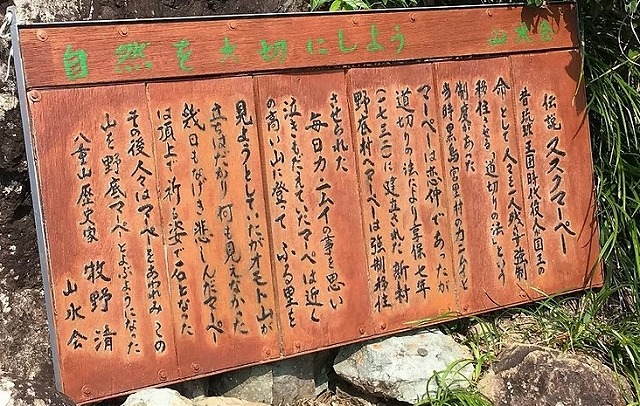 自然を大切にしよう
山水会
伝説 ヌスクマーペー
昔琉球王国時代後人全国王の
命として人々を人我に分け強制
移住させる「道切りの法」という
制度があった
当時黒島宮里村のカニムイと
マーペーは恋仲であったが
道切りの法により享保七年
(一七三二)に建立された新村
野底村へマーペーは強制移住
させられた
毎日カニムイの事を思い
泣きもだえていたマーペーは近く
の高い山に登って ふる里を
見ようとしていたがオモト山が
立ちはだかり 何も見えなかった
幾日もなげき悲しんだマーペー
は頂上で祈る姿で石となった
その後人々はマーペーをあわれみ この
山を野底マーペーとよぶようになった
八重山歴史家 牧野 清
山水会